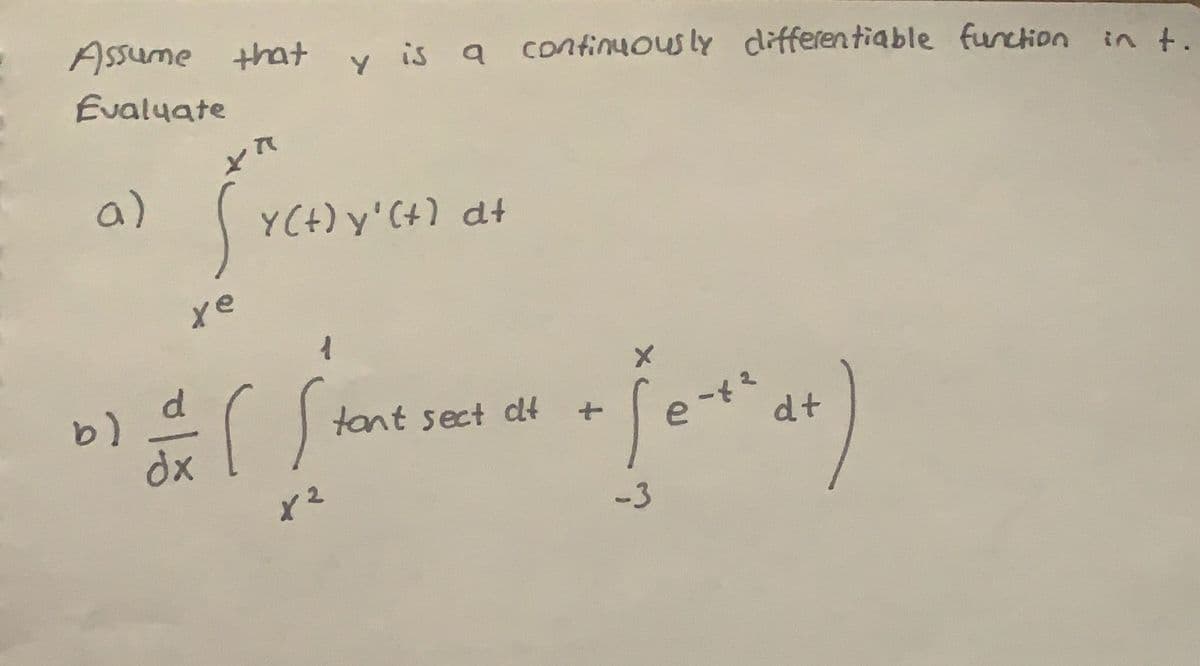 Assume that y is a continuously differentiable function in t.
Evaluate
a) ∫_{x^e}^{x^π} y(t) y'(t) dt
b) d/dx ( ∫_{x^2}^{1} tant sect dt + ∫_{-3}^{x} e^{-t^2} dt )